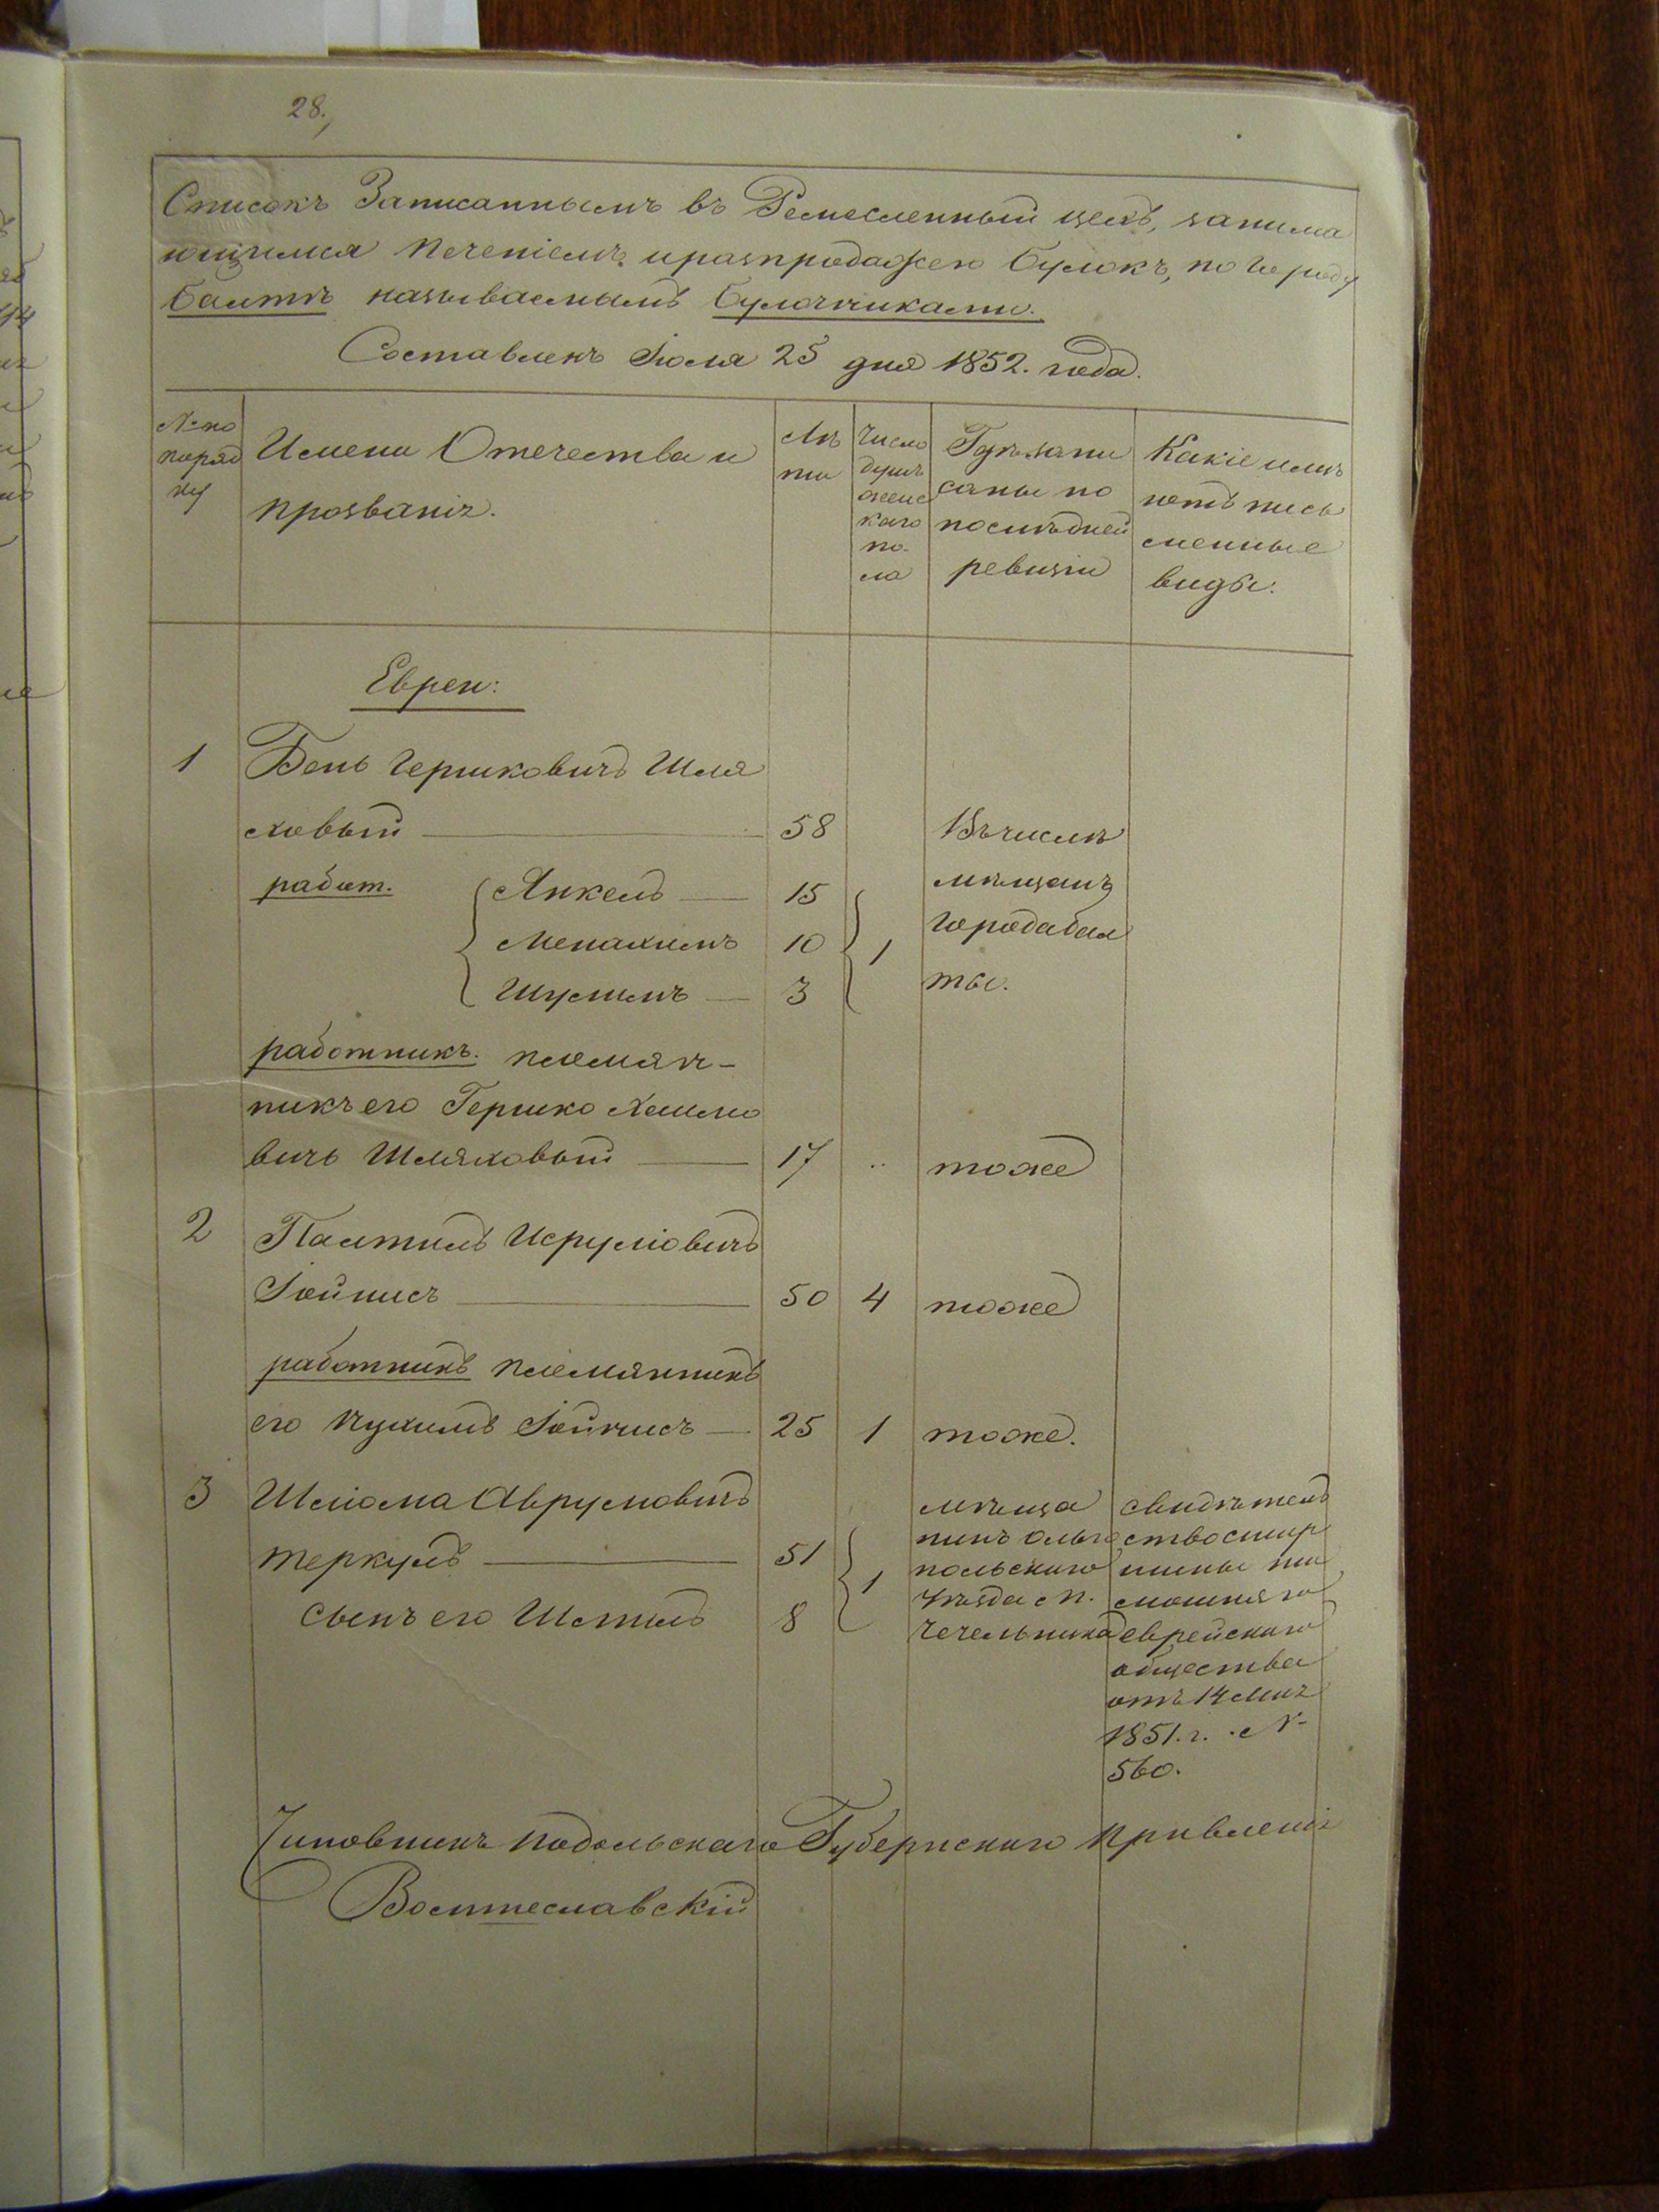 28.
Списокъ Записаннымъ въ Ремесленный цехъ, занима
ющимся печеніемъ и разпродажею булокъ, по городу
Балтѣ называемымъ булочниками.
Составленъ Іюля 25 дня 1852. года.
№ по
поряд
ку
Имена Отечества и
прозванія.
Лѣ
та
Число
душъ
женс
каго
по-
ла
Гдѣ запи
саны по
послѣдней
ревизіи
Какіе имѣ
ютъ пись
менные
виды.
Евреи:
1 Бень Гершковичъ Шля
ховый 58 Въ числѣ
работ. Янкель 15 мѣщанъ
Менахимъ 10 1 города Бал
Шулимъ 3 ты.
работникъ. племян-
никъ его Гершко Хаимо
вичъ Шляховый 17 .. тоже
2 Палтиль Исруліовичъ
Іойнисъ 50 4 тоже
работникъ племянникъ
его Нухимъ Іойнисъ 25 1 тоже.
3 Шліома Аврумовичъ
Теркулъ 51
сынъ его 8
1
мѣща
нинъ Ольго
польскаго
уѣзда м.
Чечельника
свидѣтель
ство стар  
шины та
мошняго
еврейскаго
общества
отъ 14 Мая
1851. г. №
560.
Чиновникъ Подольскаго Губернскаго Правленія